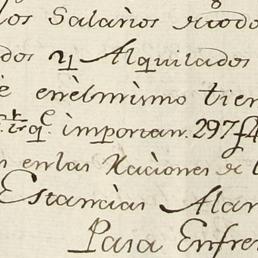 los Salarios de todo
dos y Alquilados
è enèl mismo tien
q.e importan. 297f4
n en las Raciones de l
Estancias Alar
Para Enfre